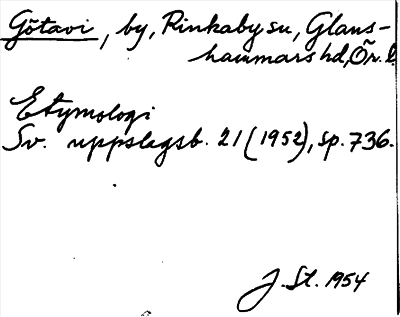 Götavi, by, Rinkaby sn, Glans-
hammars hd, Ör. l.
Etymologi
Sv. uppslagsb. 21 (1952), sp. 736.
J. St. 1954